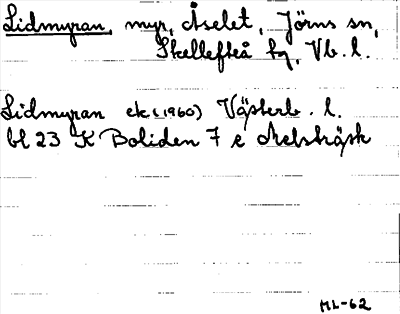 Lidmyran, myr, Åselet, Jörns sn,
Skellefteå kg, Vb. l.
Lidmyran ek (1960) Västerb. l.
bl 23 K Boliden 7 e Melsträsk
ML-62